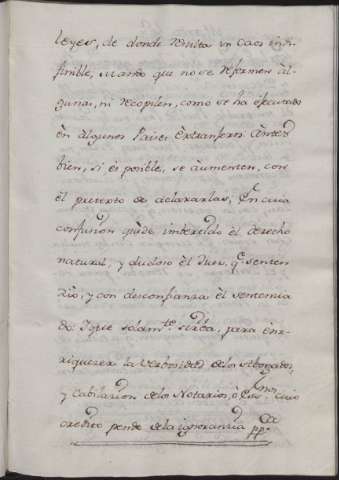 leyes, de donde resulta un Caos indi-
finible, Mando que no se reformen àl-
gunas, ni recopilen, como se ha èfecutado
èn àlgunos Paises Èxtranferos; àntes
bien, si ès posible, se àumenten, con
èl pretexto de àclararlas; En cuia
confusion quede imberido èl derecho
natural, y dudoso èl Juez, q.e senten
dio, y con desconfianza èl sentencia
do: Yque solam.te sirba, para ènr-
riquezer la Verbosidad delos Abogados,
y Cabilacion delos Notarios, ò Ess.nos cuio
credito pende dela ignorancia